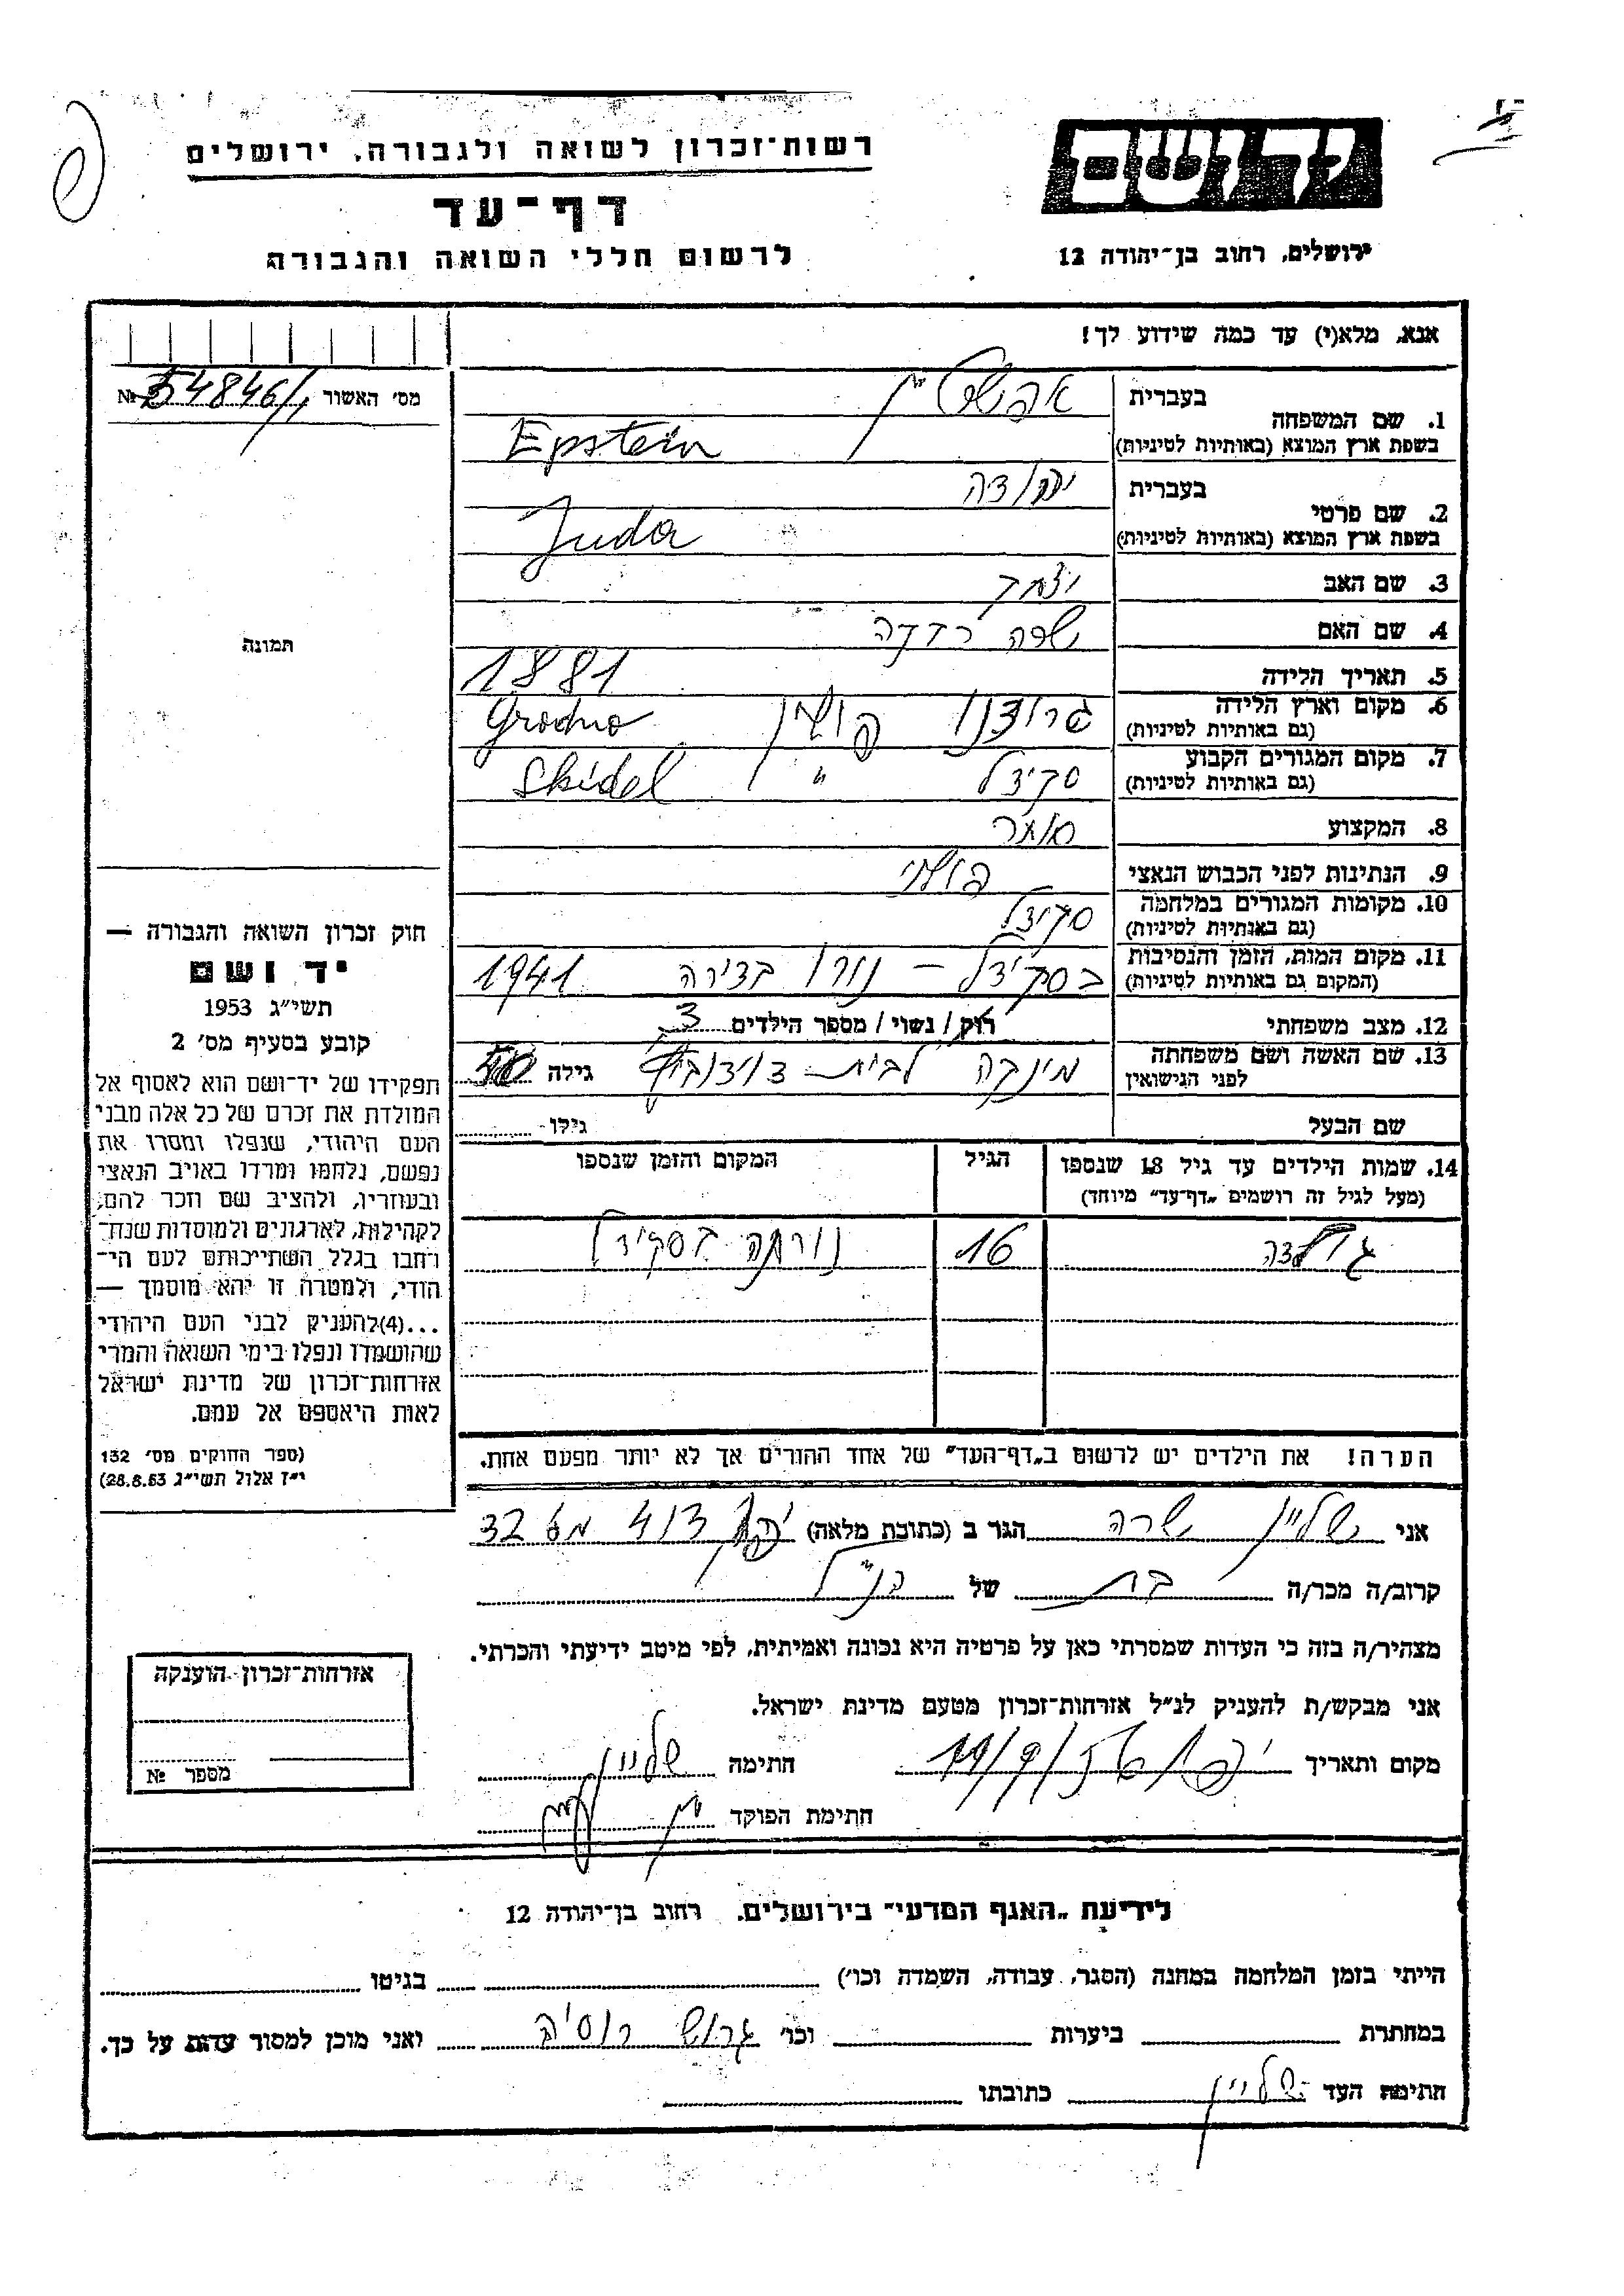 רשות־זכרון לשואה ולגבורה, ירושלים
דף־עד
לרשום חללי השואה והגבורה
יד ושם
ירושלים, רחוב בן־יהודה 12
אנא, מלא(י) עד כמה שידוע לך!
מס׳ האשור № 54846/1
תמונה
1. שם המשפחה
בעברית אפשטיין
בשפת ארץ המוצא (באותיות לטיניות) Epstein
2. שם פרטי
בעברית יהודה
בשפת ארץ המוצא (באותיות לטיניות) Juda
3. שם האב יצחק
4. שם האם שפרה
5. תאריך הלידה 1881
6. מקום וארץ הלידה גרודנו פולין Grodno
(גם באותיות לטיניות)
7. מקום המגורים הקבוע סקידל " Skidel
(גם באותיות לטיניות)
8. המקצוע סוחר
9. הנתינות לפני הכבוש הנאצי פולני
10. מקומות המגורים במלחמה סקידל
(גם באותיות לטיניות)
11. מקום המות, הזמן והנסיבות בסקידל – נורו בעירה 1941
(המקום גם באותיות לטיניות)
12. מצב משפחתי רוק/ נשוי/ מספר הילדים 3
13. שם האשה ושם משפחתה
לפני הנישואין לבית גילה
שם הבעל גילו
14. שמות הילדים עד גיל 18 שנספו
(מעל לגיל זה רושמים „דף־עד" מיוחד)
הגיל
המקום והזמן שנספו
גולדה 16 נורתה בסקידל
הערה! את הילדים יש לרשום ב„דף־העד" של אחד ההורים אך לא יותר מפעם אחת.
חוק זכרון השואה והגבורה —
יד ושם
תשי״ג 1953
קובע בסעיף מס׳ 2
תפקידו של יד־ושם הוא לאסוף אל
המולדת את זכרם של כל אלה מבני
העם היהודי, שנפלו ומסרו את
נפשם, נלחמו ומרדו באויב הנאצי
ובעוזריו, ולהציב שם וזכר להם,
לקהילות, לארגונים ולמוסדות שנח־
רחבו בגלל השתייכותם לעם הי־
הודי, ולמטרה זו יהא מוסמך —
...(4)להעניק לבני העם היהודי
שהושמדו ונפלו בימי השואה והמרי
אזרחות־זכרון של מדינת ישראל
לאות היאספם אל עמם.
(ספר החוקים מס׳ 132
י״ז אלול תשי״ג 28.8.53)
אני שליין שרה הגר ב (כתובת מלאה) 32
קרוב/ה מכר/ה בת של הנ״ל
מצהיר/ה בזה כי העדות שמסרתי כאן על פרטיה היא נכונה ואמיתית, לפי מיטב ידיעתי והכרתי.
אני מבקש/ת להעניק לנ״ל אזרחות־זכרון מטעם מדינת ישראל.
מקום ותאריך חתימה שליין
חתימת הפוקד
אזרחות־זכרון הוענקה
מספר №
לידיעת „האגף המדעי" בירושלים, רחוב בן־יהודה 12
הייתי בזמן המלחמה במחנה (הסגר, עבודה, השמדה וכו׳) בגיטו
במחתרת ביערות וכו׳ גרוש רוסיה ואני מוכן למסור עדות על כך.
חתימת העד שליין כתובתו